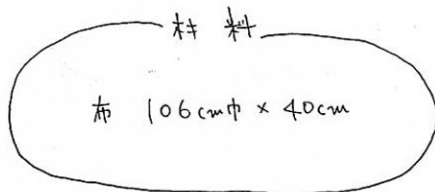 材料
布 106cm巾 × 40cm